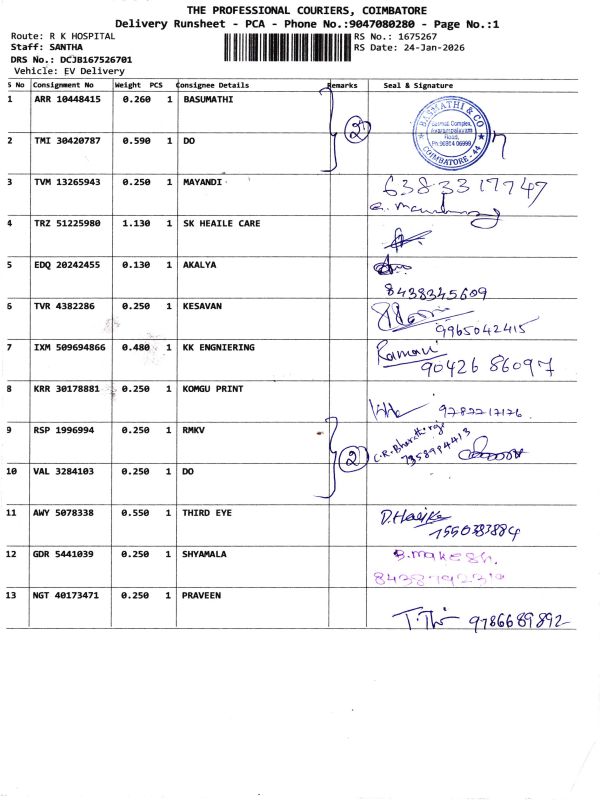 THE PROFESSIONAL COURIERS, COIMBATORE
Delivery Runsheet - PCA - Phone No.:9047080280 - Page No.:1
Route: R K HOSPITAL
Staff: SANTHA
DRS No.: DCJB167526701
Vehicle: EV Delivery
RS No.: 1675267
RS Date: 24-Jan-2026
S No Consignment No Weight PCS Consignee Details Remarks Seal & Signature
1 ARR 10448415 0.260 1 BASUMATHI
2
BASMATHI & CO
COIMBATORE - 44
2 TMI 30420787 0.590 1 DO
3 TVM 13265943 0.250 1 MAYANDI
6383317747
4 TRZ 51225980 1.130 1 SK HEAILE CARE
5 EDQ 20242455 0.130 1 AKALYA
8438345609
6 TVR 4382286 0.250 1 KESAVAN
9965042415
7 IXM 509694866 0.480 1 KK ENGNIERING
Ramani
90426 86097
8 KRR 30178881 0.250 1 KOMGU PRINT
9 RSP 1996994 0.250 1 RMKV
2
C.R.Bharathiraja
7358994413
10 VAL 3284103 0.250 1 DO
11 AWY 5078338 0.550 1 THIRD EYE
7550383884
12 GDR 5441039 0.250 1 SHYAMALA
B.makesh.
13 NGT 40173471 0.250 1 PRAVEEN
9786689892